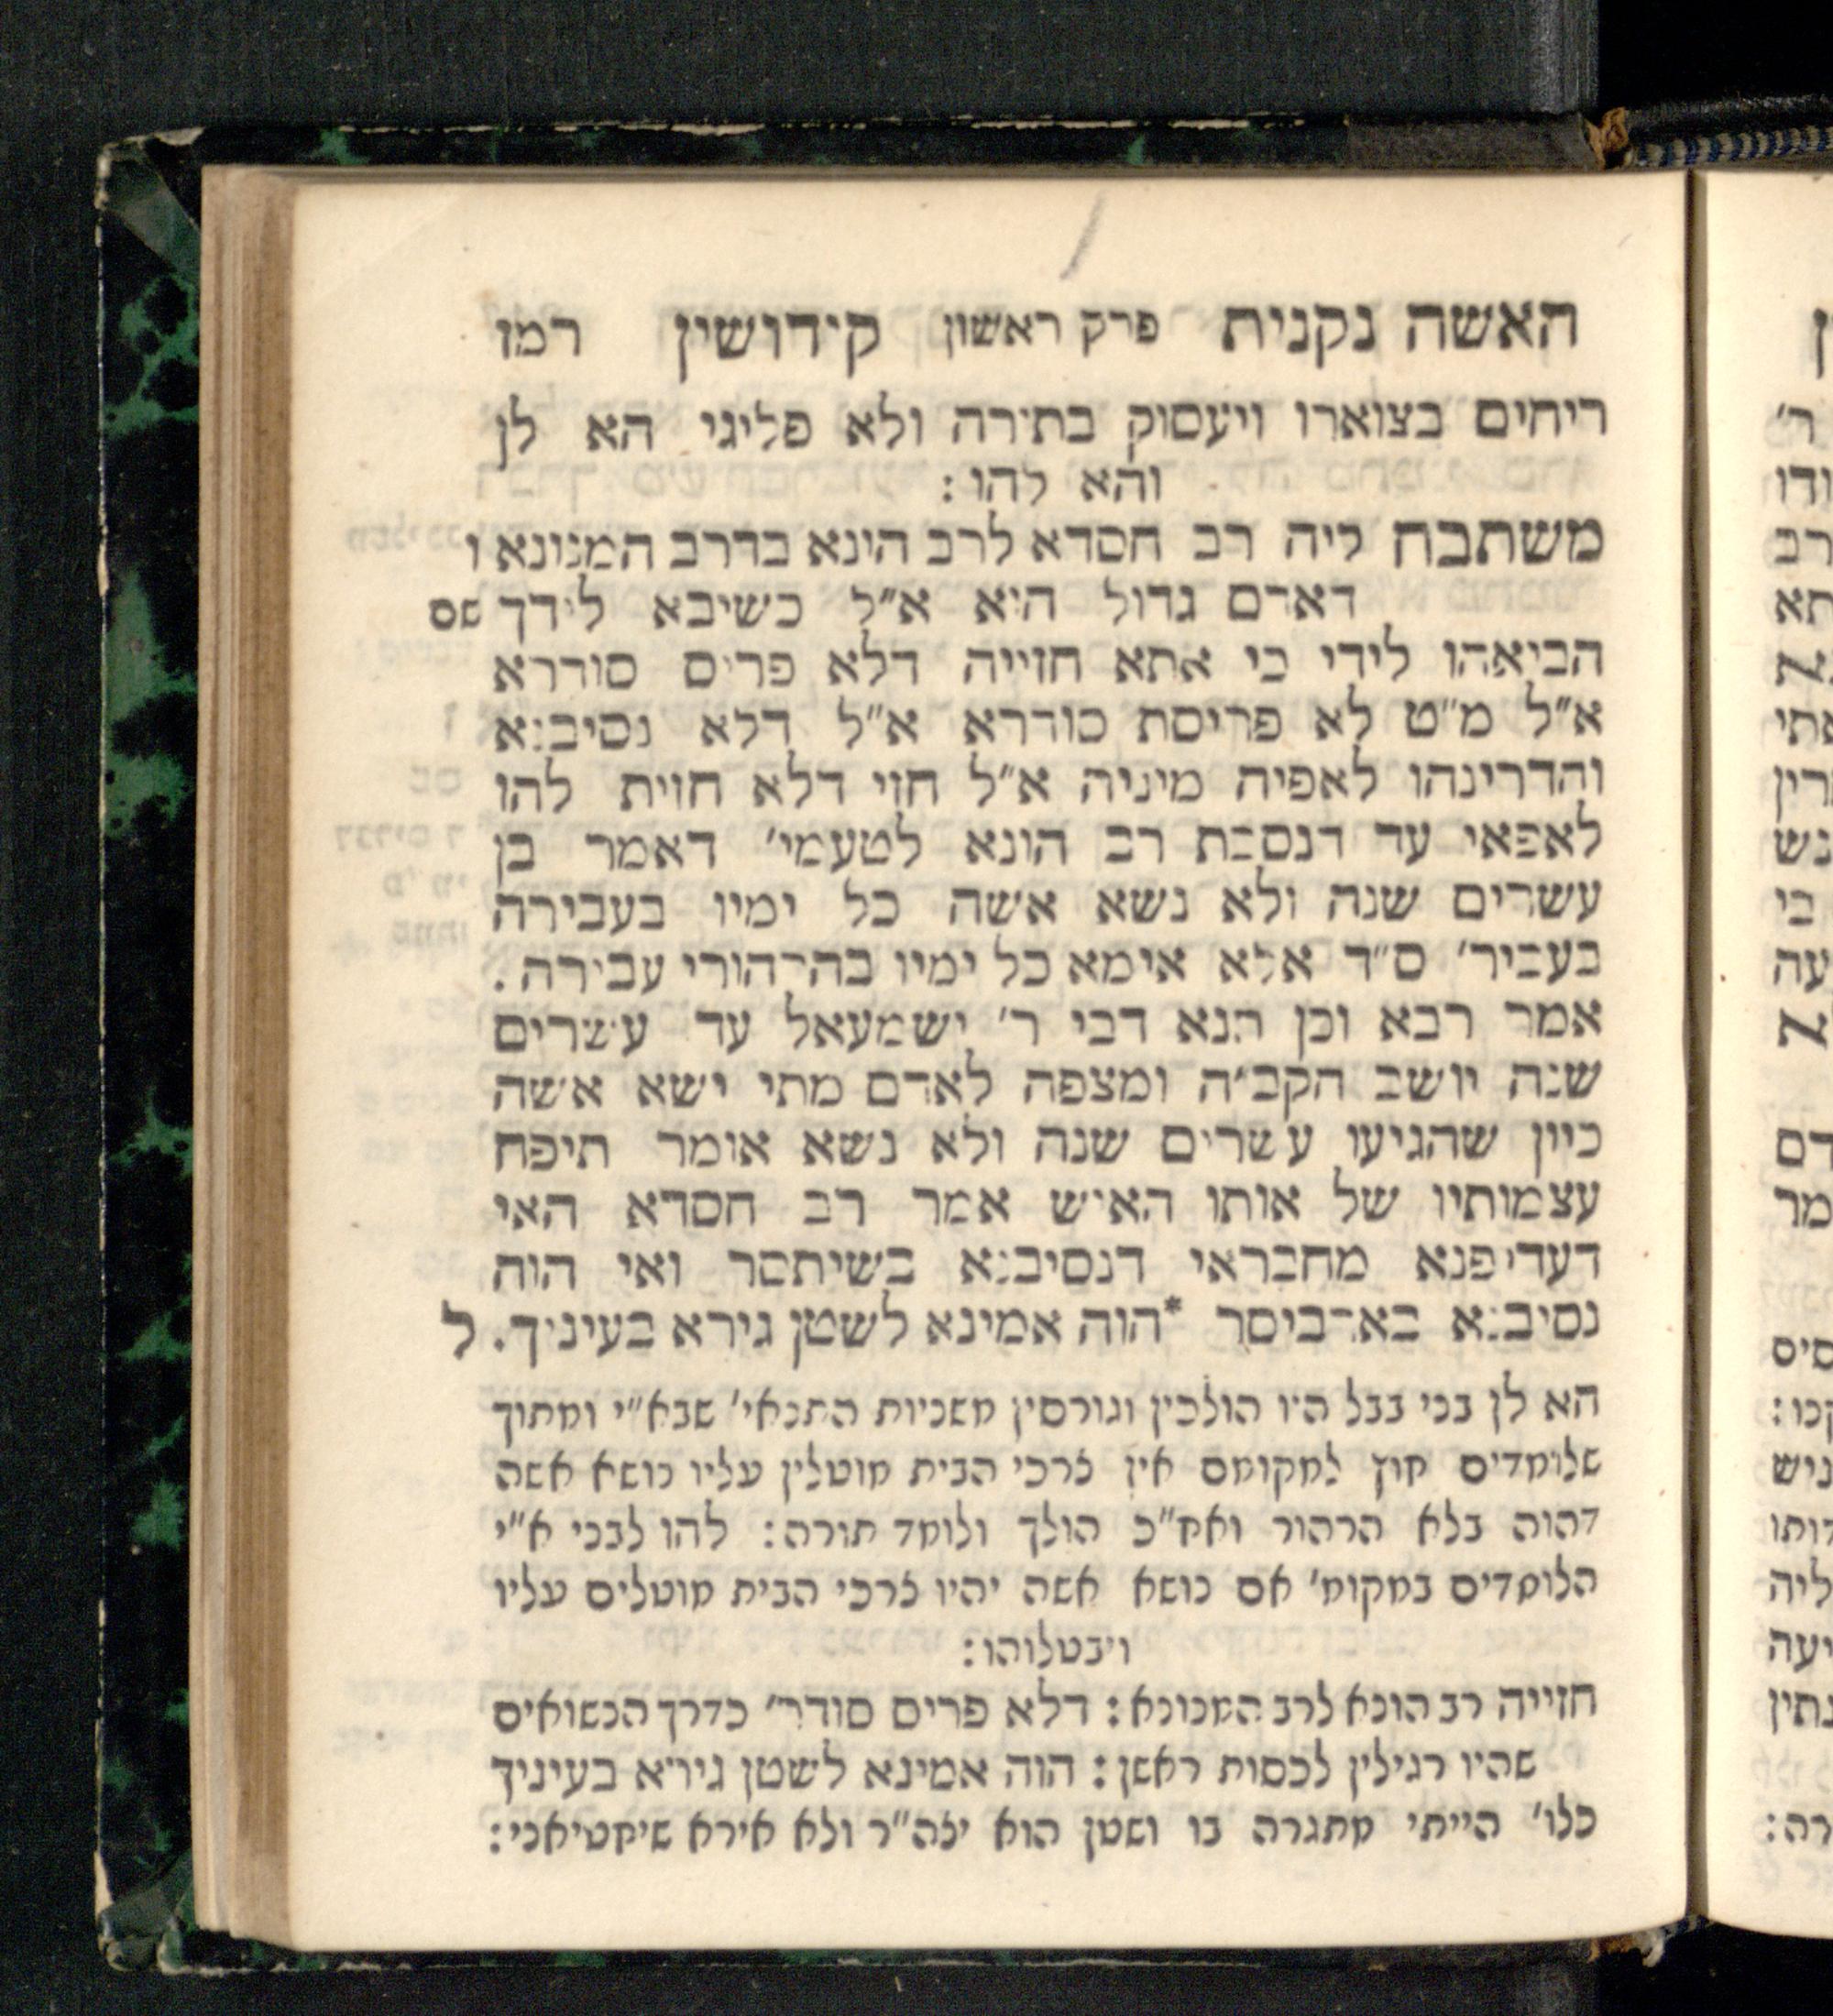 האשה נקנית פרק ראשון קידושין רמז
ריחים בצוארו ויעסוק בתורה ולא פליגי הא לן
והא להו:
משתבח ליה רב חסדא לרב הונא בדרב המנונא ו
דאדם גדול הוא א"ל כשיבא לידך שם
הביאהו לידי כי אתא חזייה דלא פרים סודרא
א"ל מ"ט לא פריסת סודרא א"ל דלא נסיבנא
והדרינהו לאפיה מיניה א"ל חזי דלא חזית להו
לאפאי עד דנסבת רב הונא לטעמי' דאמר בן
עשרים שנה ולא נשא אשה כל ימיו בעבירה
בעביר' ס"ד אלא אימא כל ימיו בהרהורי עבירה.
אמר רבא וכן תנא דבי ר' ישמעאל עד עשרים
שנה יושב הקב"ה ומצפה לאדם מתי ישא אשה
כיון שהגיעו עשרים שנה ולא נשא אומר תיפח
עצמותיו של אותו האיש אמר רב חסדא האי
דעדיפנא מחבראי דנסיבנא בשיתסר ואי הוה
נסיבנא בארביסר *הוה אמינא לשטן גירא בעיניך. ל
הא לן בני בבל היו הולכין וגורסין משניות התנאי' שבא"י ומתוך
שלומדים חוץ למקומם אין צרכי הבית מוטלין עליו נושא אשה
דהוה בלא הרהור ואח"כ הולך ולומד תורה: להו לבני א"י
הלומדים במקומ' אם נושא אשה יהיו צרכי הבית מוטלים עליו
ויבטלוהו:
חזייה רב הונא לרב המנונא: דלא פרים סודר' כדרך הנשואים
שהיו רגילין לכסות ראשן: הוה אמינא לשטן גירא בעיניך
כלו' הייתי מתגרה בו ושטן הוא יצה"ר ולא אירא שיחטיאני: